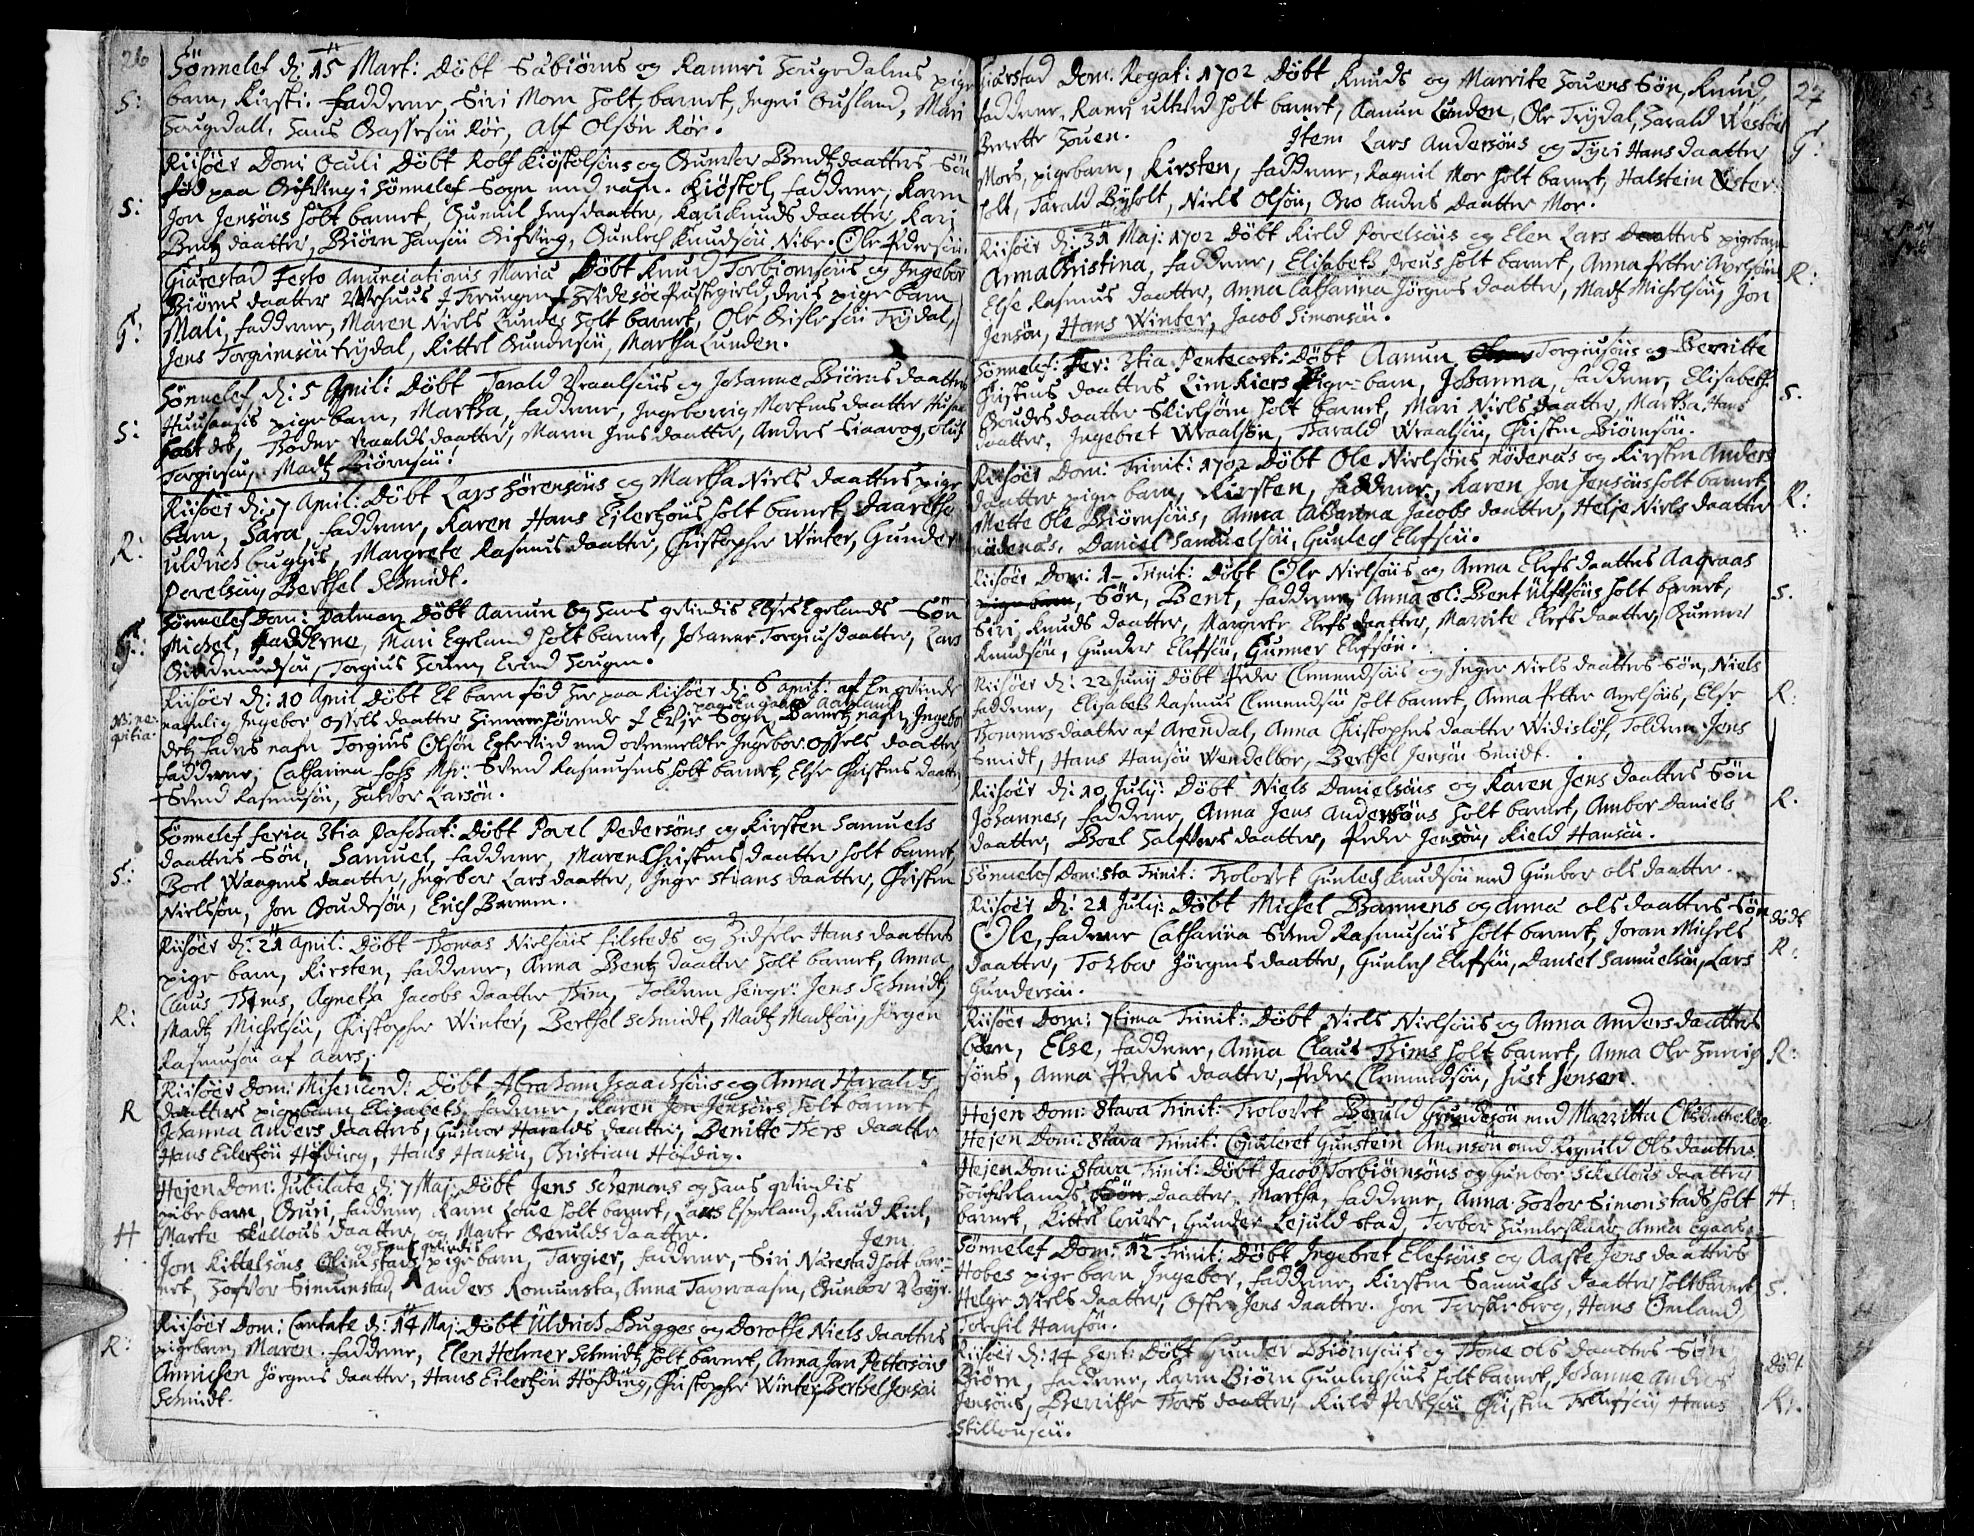 26
Sønnelef d: 15 Mart: Døbt Sabiørns og Ranneri Hougedalens pige
S: barn, Kirsti. Fadderne, Siri Moen holt barnet, Ingeri Ousland, Mari
Hougedall, Hans Gassesøn Rør, Alf Olsøn Rør.
Riisøer Dom: Oculi Døbt Rolf Kiøstolsøns og Gunvor Bendtz daatters Søn
fød paa Gifving i Sønnelef Sogn ved nafn. Kiøstol, fadderne, Karen
S: Jon Jensøns holt barnet, Gunnil Jensdaatter, Kari Knuds daatter, Kari
Bentz daatter, Biørn Hansøn Gifving, Gunlech Knudsøn Nibe. Ole Pedersøn.
Giærestad Festo Anunciationis Mariæ Døbt Knud Torbiornsøns og Ingebor
Biørns daatter pige barn
G: Mali, fadderne, Maren Niels Lunden holt barnet, Ole Gislesøn Trydal,
Jens Torgrimsøn Trydal, Kittel Gundersøn, Martha Lunden.
Sønnelef d: 5 April: Døbt Tarald Wraalsøns og Johanne Biørns daatters
S: pige barn, Martha, fadderne, Ingeborrig Mortens daatter
holt det, daatter, Maren Jens daatter, Anders Siaavog, Oluf
Torgiersøn, Madtz Biørnsøn.
Riisøer d: 7 April: Døbt Lars Sørensøns og Martha Niels daatters pige
R: barn, Sara, fadderne, Karen Hans Eilertzøns holt barnet, Daarethe
Uldrich bugges, Margrete Rasmus daatter, Christopher Winter, Gunder
Povelsøn, Berthel Schmidt.
Sønnelef Dom: Palmar Døbt Aanun og hans qvindis Elses Egelands Søn
G: Michel, Fadderne, Mari Egeland holt barnet, Johanne Torgius daatter, Lars
Torgius Houen, Erind Hougen.
Riisøer d: 10 April Døbt Et barn fød her paa Riisøer d: 6 April: af En qvinde
navnlig Ingebor Ossels daatter hørende i Sogn, Barnetz nafn, Ingebor
detz faders nafn Torgius Olsøn Egtevied med ovenmeldte Ingebor Ossels daatter
fadderne, Catharina Svend Rasmusens holt barnet, Else Christens daatter
Svend Rasmusøn, Halvor Larsøn.
Sønnelef Feria 3tia Paschat: Døbt Povel Pedersøns og Kirsten Samuels
daatters Søn, Samuel, fadderne, Maren Christens daatter holt barnet,
S: Boel Waagens daatter, Ingebor Lars daatter, Inge Stians daatter, Christen
Nielsøn, Jon Goudesøn, Erich Barmen.
Riisøer d: 21 April: Døbt Thomas Nielsøns Filsteds og Zidsele Hans daatters
pige barn, Kirsten, fadderne, Anna Bentz daatter holt barnet, Anna
R: Claus Thims, Agnetha Jacobs daatter Thim, Tolderen Jens Schmidt,
Madtz Michelsøn, Christopher Winter, Berthel Schmidt, Madtz Madtzøn, Jørgen
Rasmusøn af Aars.
Riisøer Dom: Misericord: Døbt Abraham Isaachsøns og Anna Haralds
R daatters pigebarn Elisabeth, fadderne, Karen Jon Jensøns holt barnet,
Johanna Anders daatters, Gunvor Haralds daatter, Beritte Thors daatter
Hans Eilertzøn Høfding, Hans Hansøn, Christian Høfding.
Hejen Dom: Jubilate d: 7 Maj: Døbt Jens Schemons og hans qvindis
pibe barn, Guri, fadderne, Karen Loue holt barnet, Lars Espeland, Knud Kiil,
H Marte Skellous daatter og Marte Geruldsdaatter. Jem
Jon Kittelsøns Olimstad og hans qvindis pigebarn, Targier, fadderne, Siri Nærestad holt bar=
net, Hofvor Simunstad, Anders Romunsta, Anna Taxeraasen, Gunbor
Riisøer Dom: Cantate d: 14 Maj: Døbt Uldrich Bugges og Dorothe Niels daatters
R: pigebarn, Maren. fadderne, Elen Helmer Schmidtz holt barnet, Anna Jan Pettersøns
Annichen Jørgens daatter, Hans Eilertzøn Høfding, Christopher Winter, Berthel Jensøn
Schmidt.
27
Giærstad Dom: Rogat: 1702 Døbt Knuds og Marrite Houens Søn, Knud
fadderne, Raneri holt barnet, Aanun Lunden, Ole Trydal, Harald Westøl
G: Berette Houen. Item Lars Andersøns og Tyri Hans daatter
Mors, pigebarn, Kirsten, fadderne, Ragnil Mor holt barnet, Halstein Øster
holt, Tarald Byholt, Niels Olsøn, Gro Anders daatter Mor.
Riisøer d: 31 Maj: 1702 Døbt Kield Povelsøns og Elen Lars daatters pigebarn
Anna Christina, fadderne, Elisabeth Preus holt barnet, Anna Petter Axelsøns
R: Else Rasmus daatter, Anna Catharina Jørgens daatter, Madtz Michelsøn, Jon
Jensøn, Hans Winter, Jacob Simonsøn.
Sønnelef: Fer: 3tia Pentecost: Døbt Aanun Torgiusøns og Berritte
Christens daatters Limkiers Pige=barn, Johanna, fadderne, Elisabeth
S. Goudes daatter Skielsøen holt barnet, Mari Niels daatter, Martha Hans
daatter, Ingebret Wraalsøn, Tharald Wraalsøn, Christen Biørnsøn.
Riisøer Dom: Trinit: 1702 Døbt Ole Nielsøns Rødenæs og Kirsten Anders
daatter pige barn, Kirsten, fadderne, Karen Jon Jensøns holt barnet,
R: Mette Ole Biørnsøns, Anna Catarina Jacobs daatter, Helje Niels daatter
Rødenæs, Daniel Samuelsøn, Gunlech Elefsøn.
Riisøer Dom: 1 Trinit: Døbt Ole Nielsøns og Anna Elefs daatters Aagraas
S. Søn, Bent, fadderne, Anna ol: Bent Ulfsøns holt barnet,
Siri Knuds daatter, Margrete Elefs daatter, Marrite Elefs daatter, Gunner
Knudsøn, Gunder Elifsøn, Gunner Elifsøn.
Riisøer d: 22 Junij Døbt Peder Clemendsøns og Inger Niels daatters Søn, Niels
R: fadderne, Elisabeth Rasmus Clemendsøn holt barnet, Anna Petter Axelsøns, Else
Thommes daatter af Arendal, Anna Christophers daatter Widisløf, Tolderen Jens
Smidt, Hans Hansøn Wendelboe, Berthel Jensøn Smidt.
Riisøer d: 10 Julij: Døbt Niels Danielsøns og Karen Jens daatters Søn
R. Johannes, fadderne, Anna Jens Andersøns holt barnet, Ambor Daniels
daatter, Boel Halfvors daatter, Peder Jensøn, Kield Hansøn.
Sønnelef Dom: 5ta Trinit: Trolovet Gunlech Knudsøn med Gunbor Ols daatter.
Riisøer d: 21 Julij: Døbt Michel Bannens og Anna Ols daatters Søn
død
R: Ole, fadderne Catharina Svend Rasmusøns holt barnet, Joran Michels
daatter, Torbor Jørgens daatter, Gunlech Elefsøn, Daniel Samuelsøn, Lars
Gundersøn.
Riisøer Dom: 7tima Trinit: Døbt Niels Nielsøns og Anna Anders daatters
R: børn, Else, fadderne, Anna Claus Thims holt barnet, Anna Ole
søns, Anna Peders daatter, Peder Clemendsøn, Just Jensen.
Hejen Dom: 8tava Trinit: Trolovet Beruld Grundesøn med Marritta
Hejen Dom: 8tava Trinit: Copuleret Gunstein Amensøn med Regnild Ols daatter.
Hejen Dom: 8tava Trinit: Døbt Jacob Torbiørnsøns og Gunbor Schellous daatter
H: daatter, Martha, fadderne, Anna Hovor Simonstads holt
barnet, Kittel Louve, Gunder Lejuldstad, Torbor Humleskaar, Anna Egaas.
Sønnelef Dom: 12 Trinit: Døbt Ingebret Elefsøns og Aaste Jens daatters
Hobes pige barn, Ingebor, fadderne, Kirsten Samuels daatter holt barnet
S. Helge Niels daatter, Oste Jens daatter. Jon Torskeberg, Hans Omland
Torchil Hansøn.
Riisøer d: 14 Sept: Døbt Gunder Biørnsøns og Thone Ols daatters Søn
død
R: Biørn, fadderne, Karen Biørn Gunlechsøns holt barnet, Johanne Anders
Jensøns, Berrithe Thors daatter, Kield Povelsøn, Christen Hans
Skillousøn.